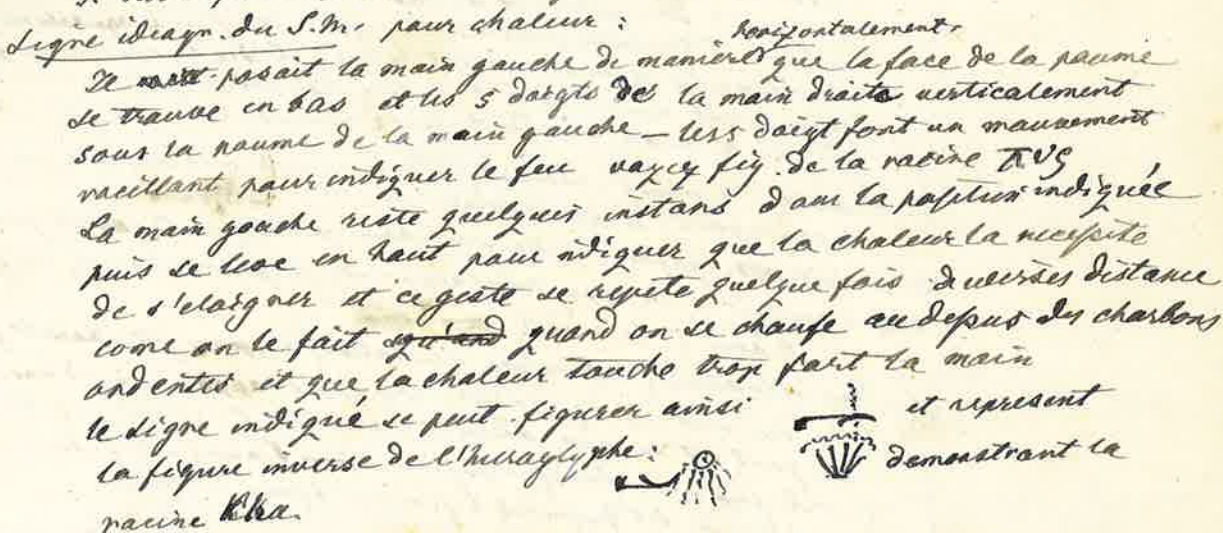 Signe ideogr. du S.M. pour chaleur :
horizontalement.
Il posait la main gauche de manière que la face de la paume
se trouve en bas et les 5 doigts de la main droite verticalement
sous la paume de la main gauche – les 5 doigt font un mouvement
vacillant pour indiquer le feu voyez fig. de la racine πυς
La main gauche reste quelques instans dans la position indiquée
puis se leve en haut pour indiquer que la chaleur la necessite
de s'eloigner et ce geste se repete quelque fois diverses distance
come on le fait qu'and quand on se chaufe au depus des charbons
ardentes et que la chaleur touche trop fort la main
le signe indiqué se peut figurer ainsi et represent
la figure inverse de l'hieroglyphe : demonstrant la
racine Kha.